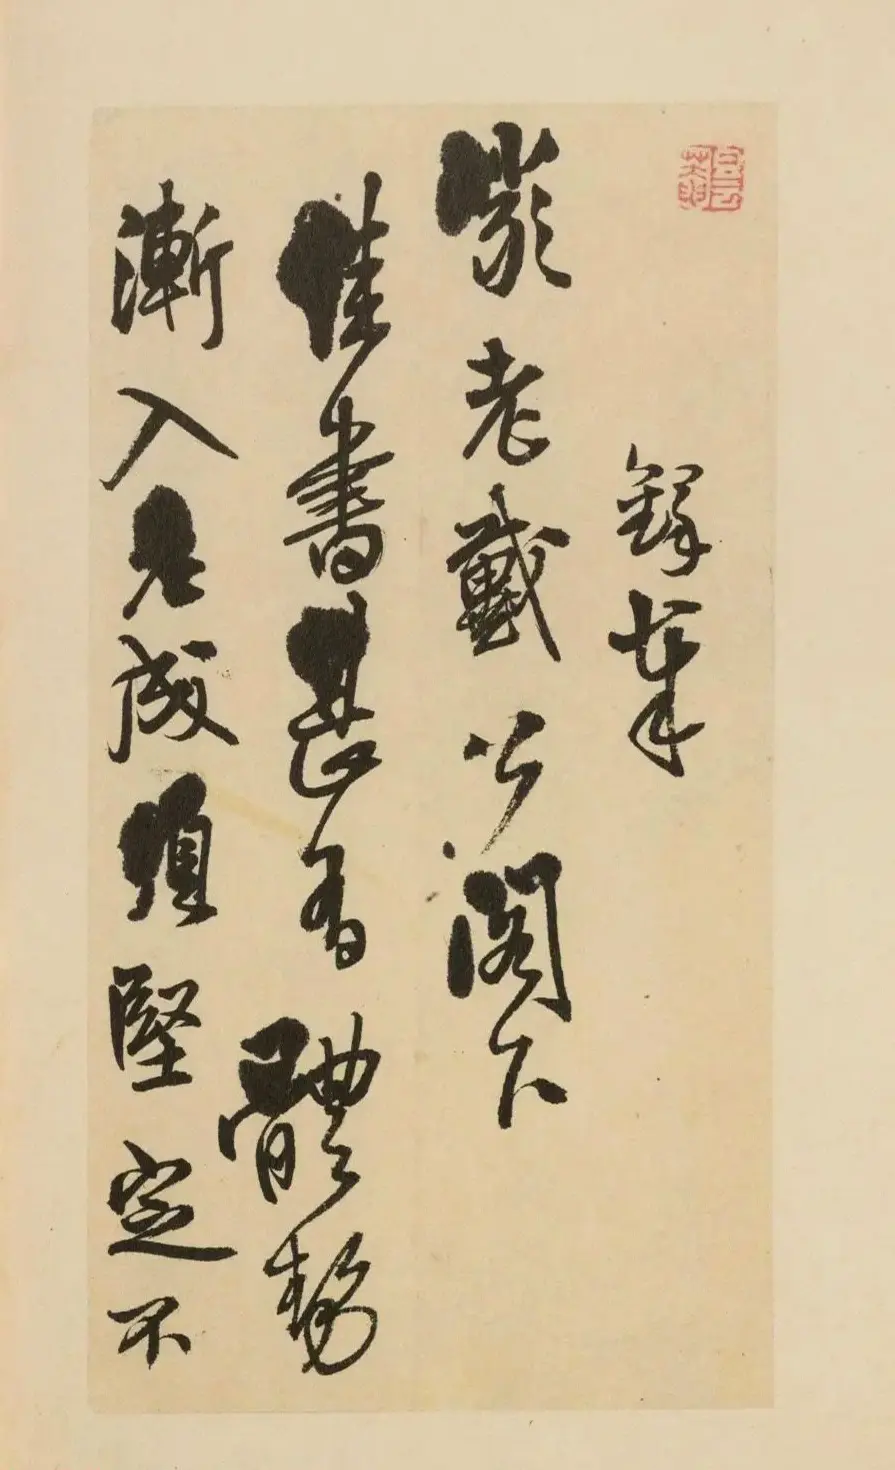 鐸
巖老戴公閣下
佳書甚有體勢
漸入老成須堅定不